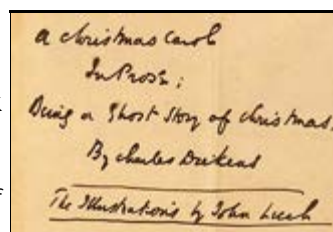 A Christmas Carol
In Prose;
Being a Ghost Story of Christmas.
By Charles Dickens
The Illustrations by John Leech